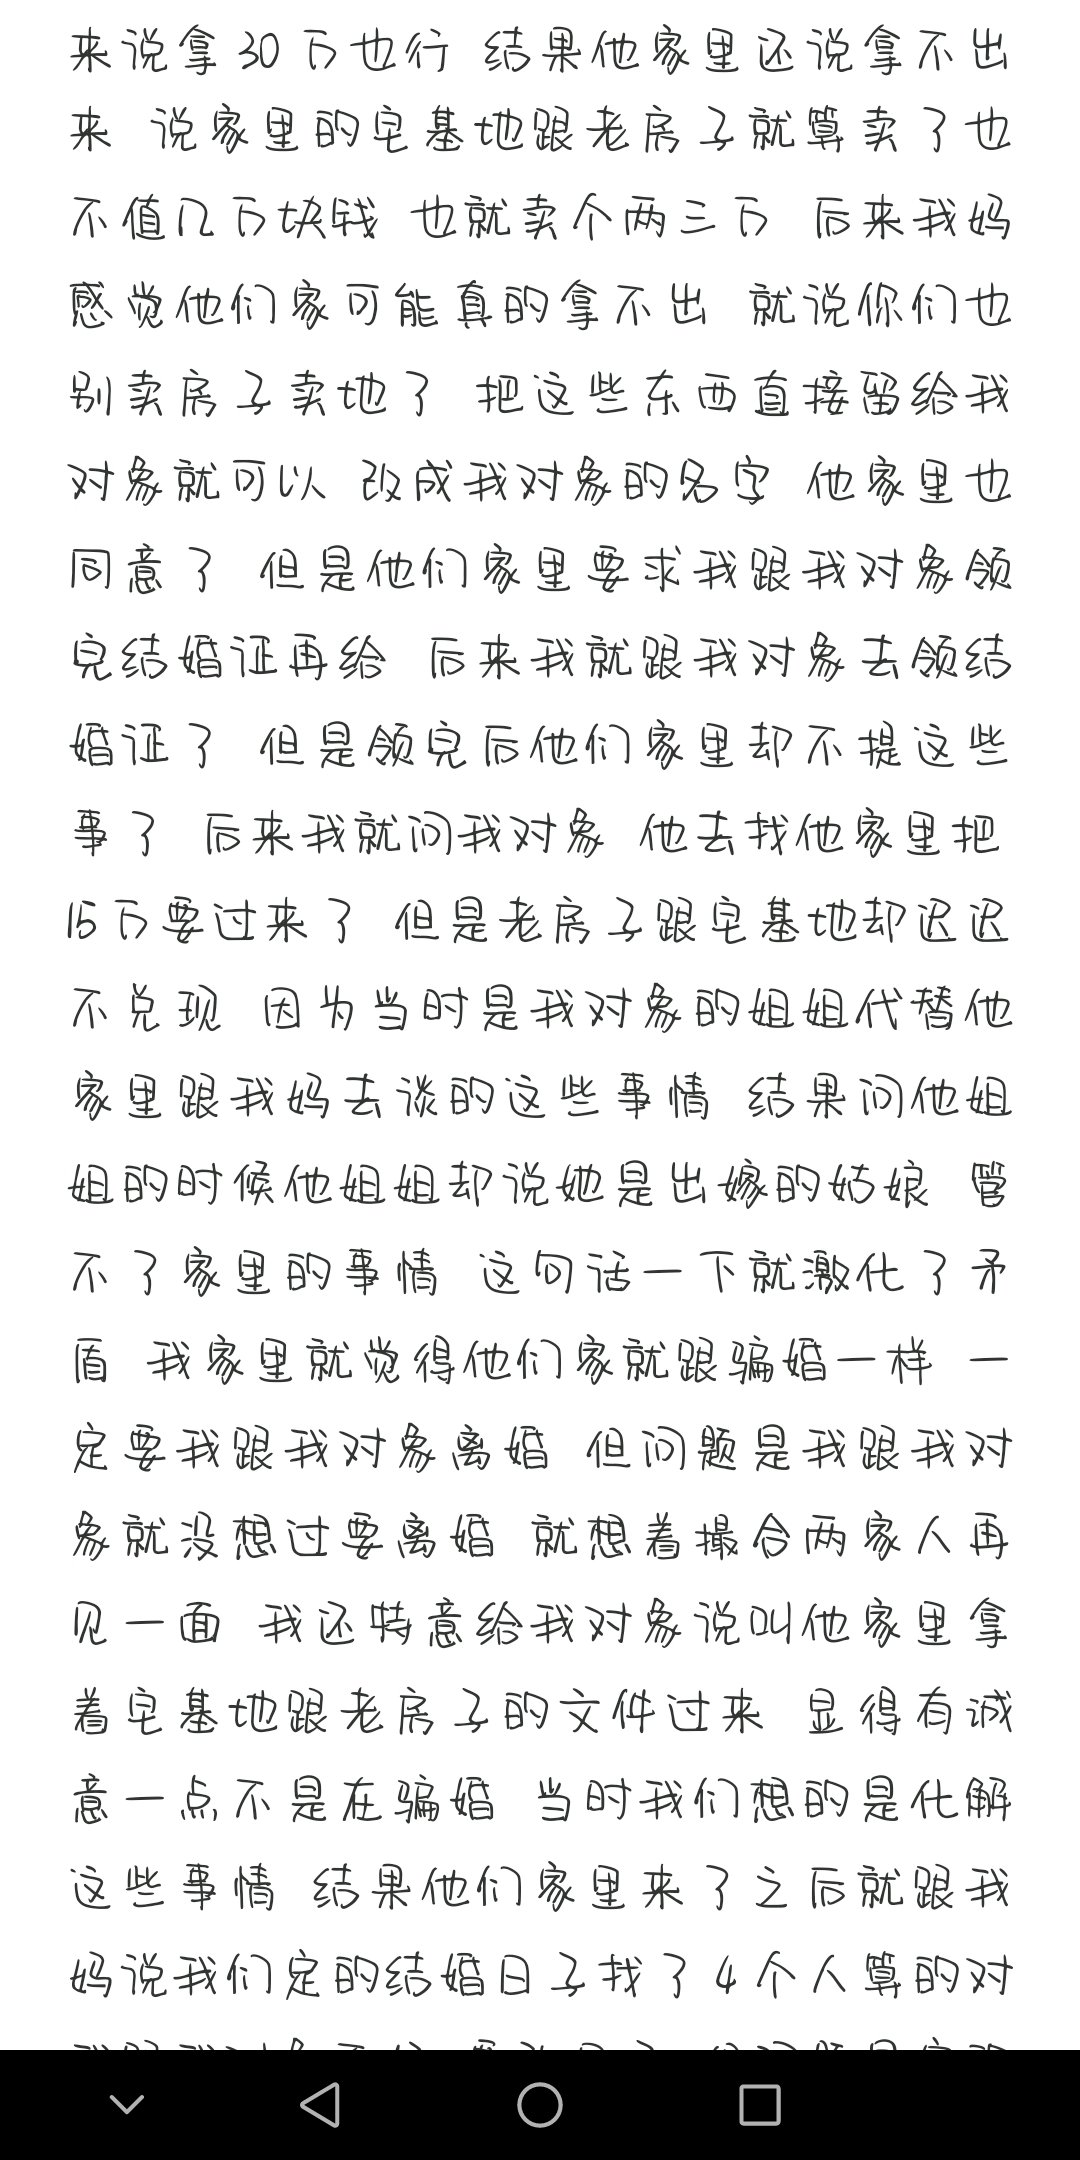 来说拿30万也行 结果他家里还说拿不出
来 说家里的宅基地跟老房子就算卖了也
不值几万块钱 也就卖个两三万 后来我妈
感觉他们家可能真的拿不出 就说你们也
别卖房子卖地了 把这些东西直接留给我
对象就可以 改成我对象的名字 他家里也
同意了 但是他们家里要求我跟我对象领
完结婚证再给 后来我就跟我对象去领结
婚证了 但是领完后他们家里却不提这些
事了 后来我就问我对象 他去找他家里把
15万要过来了 但是老房子跟宅基地却迟迟
不兑现 因为当时是我对象的姐姐代替他
家里跟我妈去谈的这些事情 结果问他姐
姐的时候他姐姐却说她是出嫁的姑娘 管
不了家里的事情 这句话一下就激化了矛
盾 我家里就觉得他们家就跟骗婚一样 一
定要我跟我对象离婚 但问题是我跟我对
象就没想过要离婚 就想着撮合两家人再
见一面 我还特意给我对象说叫他家里拿
着宅基地跟老房子的文件过来 显得有诚
意一点不是在骗婚 当时我们想的是化解
这些事情 结果他们家里来了之后就跟我
妈说我们定的结婚日子找了4个人算的对